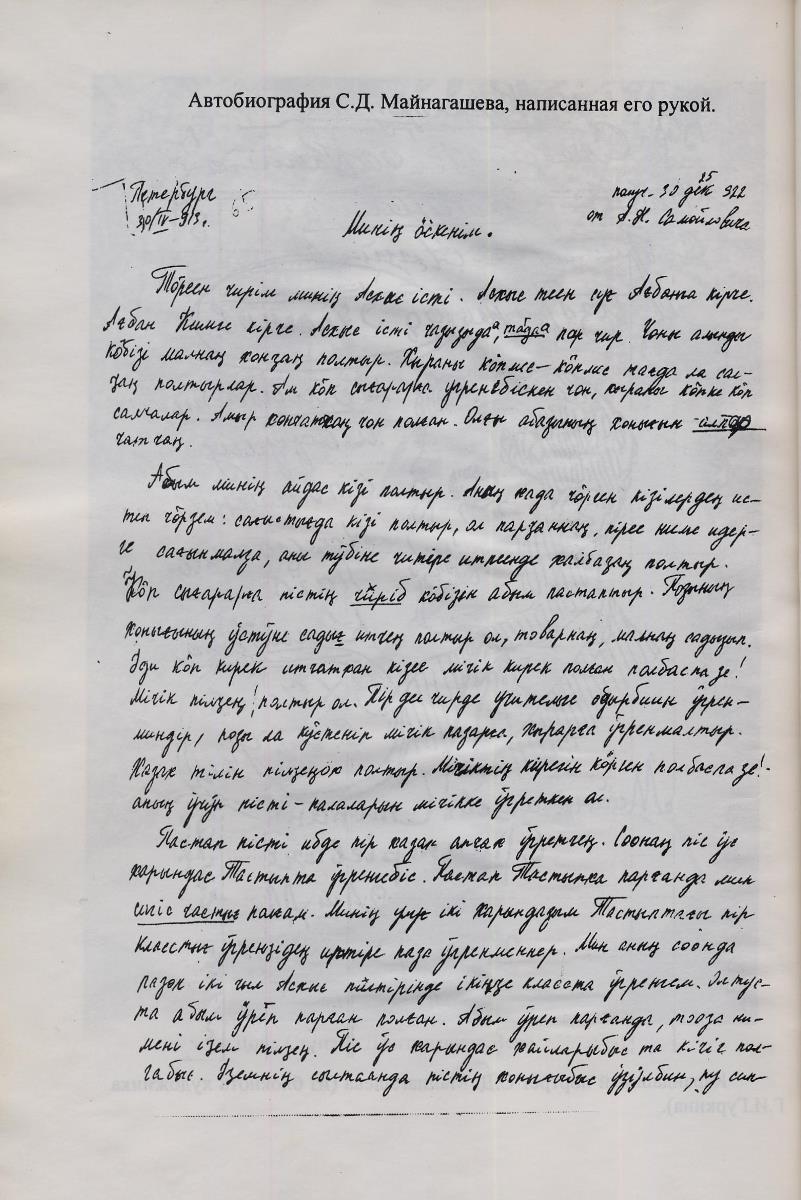 Автобиография С.Д. Майнагашева, написанная его рукой.
Петербург
30/IV–913 г.
65
получ. 30 дек 922
25
от А.Н. Самойловича
Минің öскенім.
Тöреен чирім минің Асхыс істі. Асхыс теен суғ Ағбанға кірче.
Ағбан Кимге кірче. Асхыс істі чазызында, пор чир. Чоны алынды
кöбізі малнаң хонҷаң полтыр. Хыраны кöпмес-кöпмес тағда ла сал-
ҷаң полтырлар. Ам кöп сығарарға ӱгренĕбіскен чон, хыраны кöпке кöп
салчалар. Амыр чон полған. Олғы абазының хонығын
чатчаң.
Абым минің айдас кізі полтыр. Аның хада чöрген кізілердең ис-
теп чöрзем: сағыстығда кізі полтыр, ол парзаннаң, пірее ниме идер-
ге сағынмалза, аны тӱбіне читіре итпеенде халбаҷаң полтыр.
Кöп сығарарға пістің чӱріб кöбізін абым пастаптыр. Позының
хонығының ӱстӱне садығ итчең полтыр ол, товарнаң, малнаң садызып.
Іди кöп кирек итчатхан кізее мічік кирек полған полбаспа зе!
Мічік пілҷең! полтыр ол. Пір дее чирде учительге одырбиин ӱгрен-
миндір, позы ла кӱстеніп мічік пазарға, хығрарға ӱгренмалтыр.
Хазах тілін пілҷеңöк полтыр. Мічіктің кирегін кöрген полбаспа зе!-
аның ӱчӱн пісті-палаларын мічікке ӱгреткен ол.
Пастап пісті ибде пір хазах апчах ӱгретчең. Соонаң піс ӱс
харындас Тастыпта ӱгренебіс. Пастап Тастыпха парғанда мин
сигіс частығ полғам. Минің улуғ ікі харындазым Тастыптағы пір
классты ӱгренҷідең иртіре паза ӱгренменнер. Мин аның соонда
пазох ікі чыл Асхыс пилтірінде ікінҷе класста ӱгренгем. Ол тус-
та абым ӱреп парған полған. Абым ӱреп парғанда, тооза ни-
мені іҷем пілҷең. Піс ӱс харындас хайларыбыс та кічіг пол-
ғабыс. Іҷемнің сылтаанда пістің хонығыбыс ӱзӱлбин, пу сил-